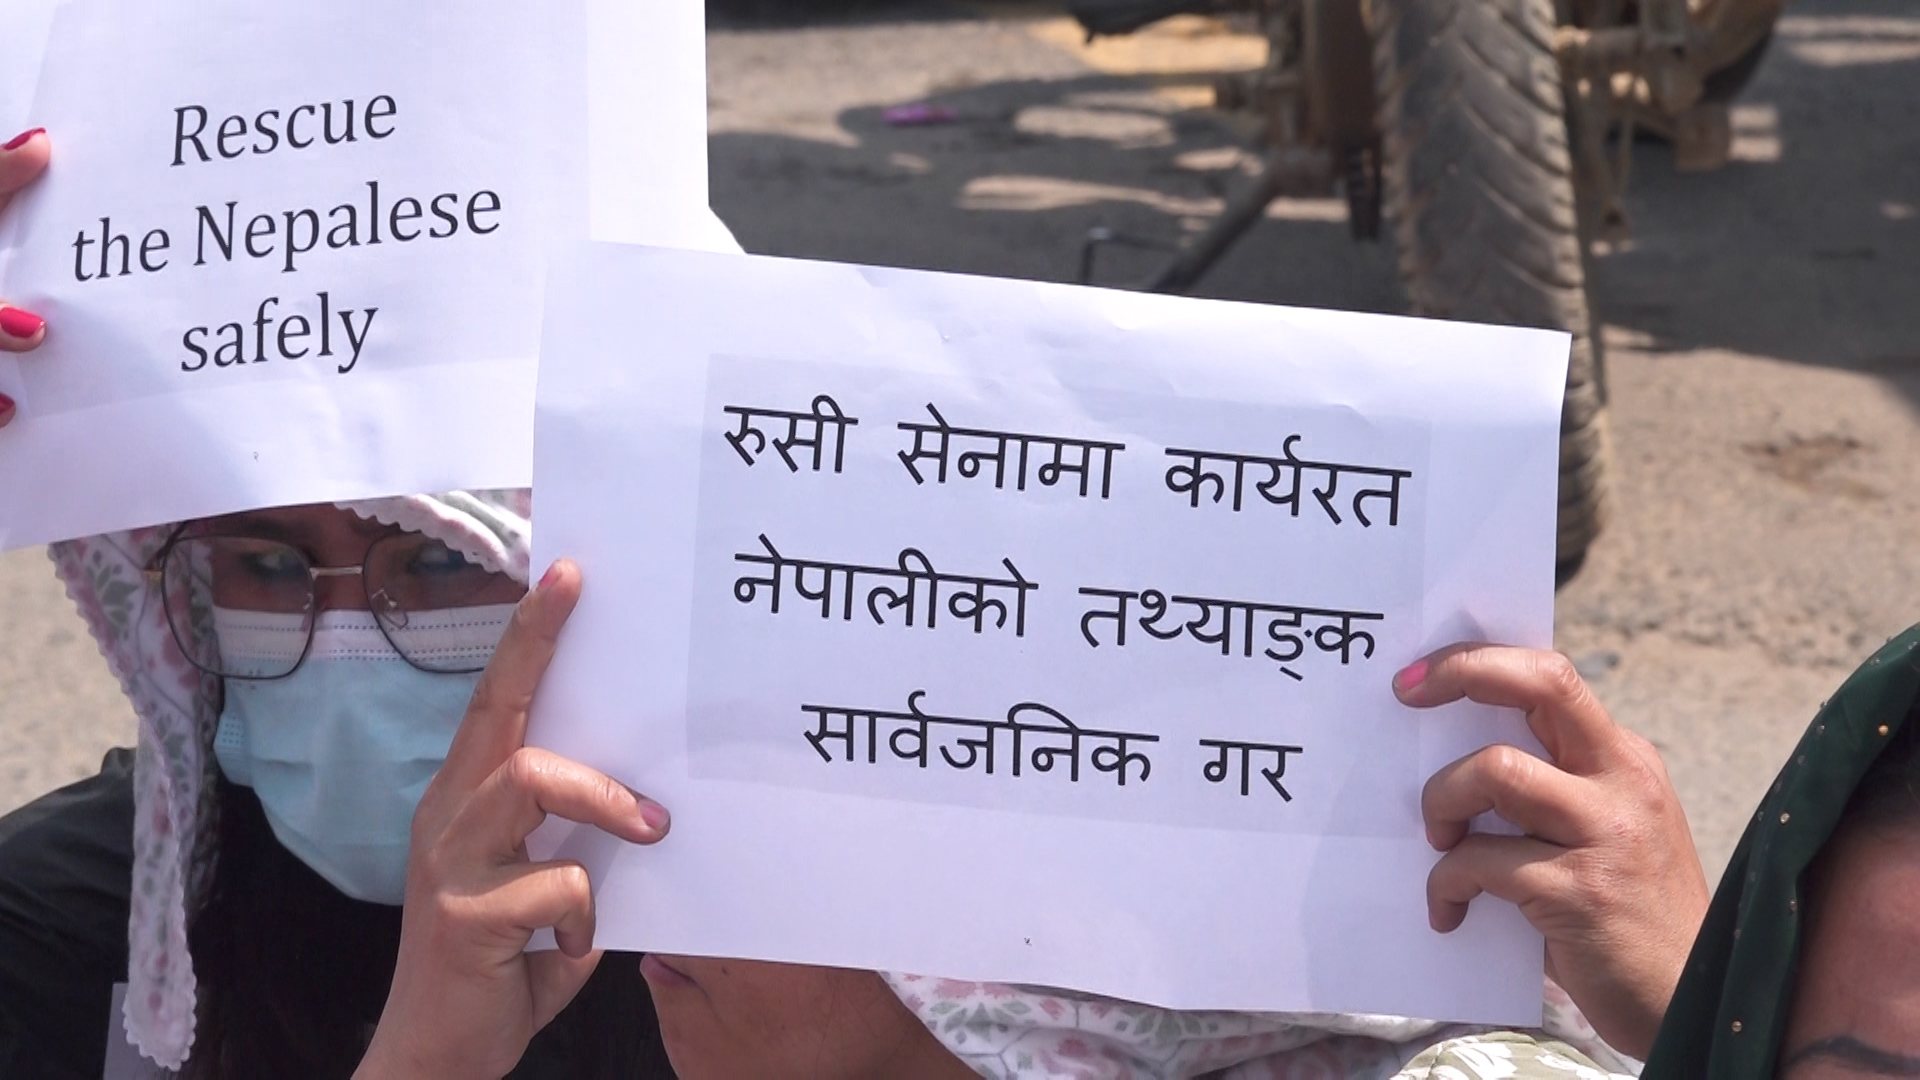 Rescue
the Nepalese
safely
रुसी सेनामा कार्यरत
नेपालीको तथ्याङ्क
सार्वजनिक गर